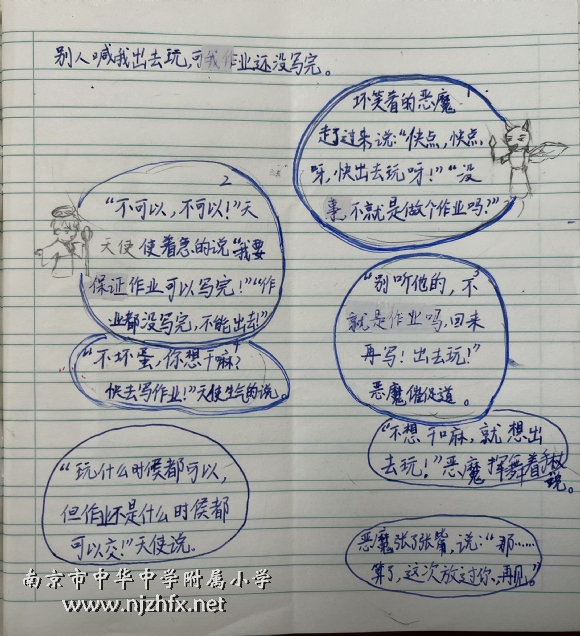 别人喊我出去玩,可我作业还没写完。
坏笑着的恶魔
走了过来说:“快点,快点
呀,快出去玩呀!”“没
事,不就是做个作业吗?”
2
“不可以,不可以!”天
天使使着急的说“我要
保证作业可以写完!”“作
业都没写完,不能出去!”
“别听他的,不
3
就是作业吗,回来
再写!出去玩!”
恶魔催促道。
“不坏蛋,你想干嘛?
快去写作业!”天使生气的说。
“不想干麻,就想出
去玩!”恶魔挥舞着手杖
说。
“玩什么时侯都可以,
但作业不是什么时侯都
可以交!”天使说.
恶魔张了张嘴,说:“那……
算了,这次放过你、再见。”
南京市中华中学附属小学
www.njzhfx.net